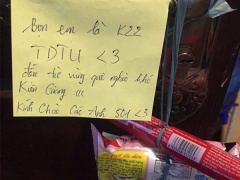 Bọn em là K22
TDTU <3
đến từ vùng quê nghèo khó
Kiên Giang
Kính Chào Các Anh <3